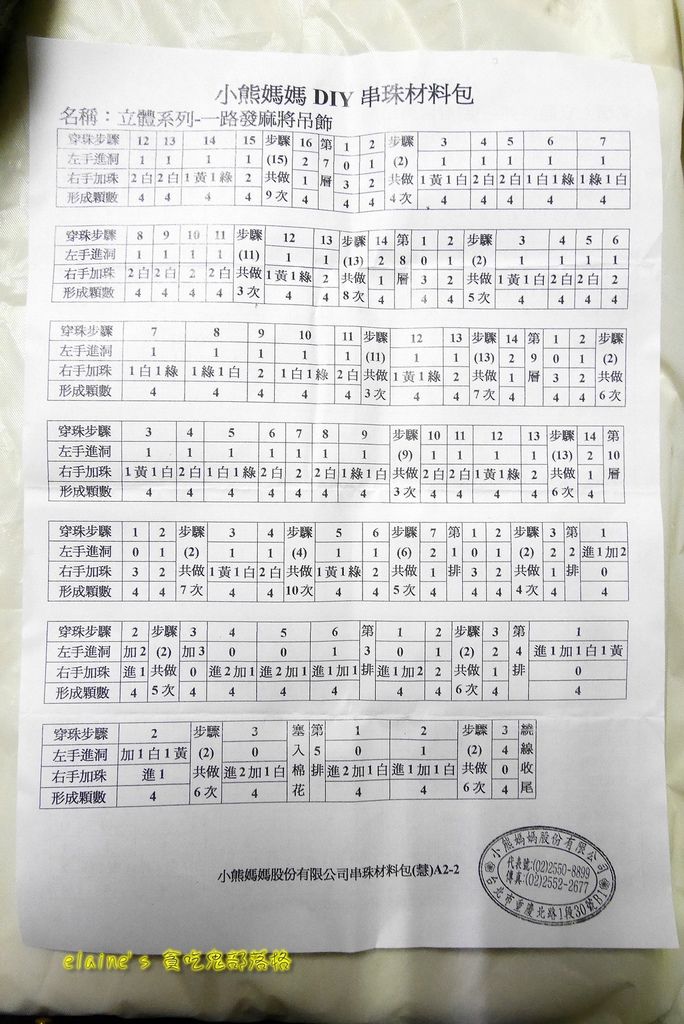 小熊媽媽 DIY 串珠材料包
名稱：立體系列-一路發麻將吊飾
穿珠步驟 12 13 14 15 步驟 16 第 1 2 步驟 3 4 5 6 7
左手進洞 1 1 1 1 (15) 2 7 0 1 (2) 1 1 1 1 1
右手加珠 2白 2白 1黃1綠 2 共做 1 層 3 2 共做 1黃1白 2白 2白 1白1綠 1綠1白
形成顆數 4 4 4 4 9次 4 4 4 4次 4 4 4 4 4
穿珠步驟 8 9 10 11 步驟 12 13 步驟 14 第 1 2 步驟 3 4 5 6
左手進洞 1 1 1 1 (11) 1 1 (13) 2 8 0 1 (2) 1 1 1 1
右手加珠 2白 2白 2 2白 共做 1黃1綠 2 共做 1 層 3 2 共做 1黃1白 2白 2白 2
形成顆數 4 4 4 4 3次 4 4 8次 4 4 4 5次 4 4 4 4
穿珠步驟 7 8 9 10 11 步驟 12 13 步驟 14 第 1 2 步驟
左手進洞 1 1 1 1 1 (11) 1 1 (13) 2 9 0 1 (2)
右手加珠 1白1綠 1綠1白 2 1白1綠 2白 共做 1黃1綠 2 共做 1 層 3 2 共做
形成顆數 4 4 4 4 4 3次 4 4 7次 4 4 4 6次
穿珠步驟 3 4 5 6 7 8 9 步驟 10 11 12 13 步驟 14 第
左手進洞 1 1 1 1 1 1 1 (9) 1 1 1 1 (13) 2 10
右手加珠 1黃1白 2白 1白1綠 2白 2 2白 1綠1白 共做 2白 2白 1黃1綠 2 共做 1 層
形成顆數 4 4 4 4 4 4 4 3次 4 4 4 4 6次 4
穿珠步驟 1 2 步驟 3 4 步驟 5 6 步驟 7 第 1 2 步驟 3 第 1
左手進洞 0 1 (2) 1 1 (4) 1 1 (6) 2 1 0 1 (2) 2 2 進1加2
右手加珠 3 2 共做 1黃1白 2白 共做 1黃1綠 2 共做 1 排 3 2 共做 1 排 0
形成顆數 4 4 7次 4 4 10次 4 4 5次 4 4 4 4次 4 4
穿珠步驟 2 步驟 3 4 5 6 第 1 2 步驟 3 第 1
左手進洞 加2 (2) 加3 0 0 1 3 0 1 (2) 2 4 進1加1白1黃
右手加珠 進1 共做 0 進2加1 進2加1 進1加1 排 進1加2 2 共做 1 排 0
形成顆數 4 5次 4 4 4 4 4 4 6次 4 4
穿珠步驟 2 步驟 3 塞入棉花 第 1 2 步驟 3 繞線收尾
左手進洞 加1白1黃 (2) 0 5 0 1 (2) 4
右手加珠 進1 共做 進2加1白 排 進2加1白 進1加1白 共做 0
形成顆數 4 6次 4 4 4 6次 4
小熊媽媽股份有限公司串珠材料包(慧)A2-2
小熊媽媽股份有限公司
代表號:(02)2550-8899
傳真:(02)2552-2677
台北市重慶北路1段30號B1
elaine's 貪吃鬼部落格